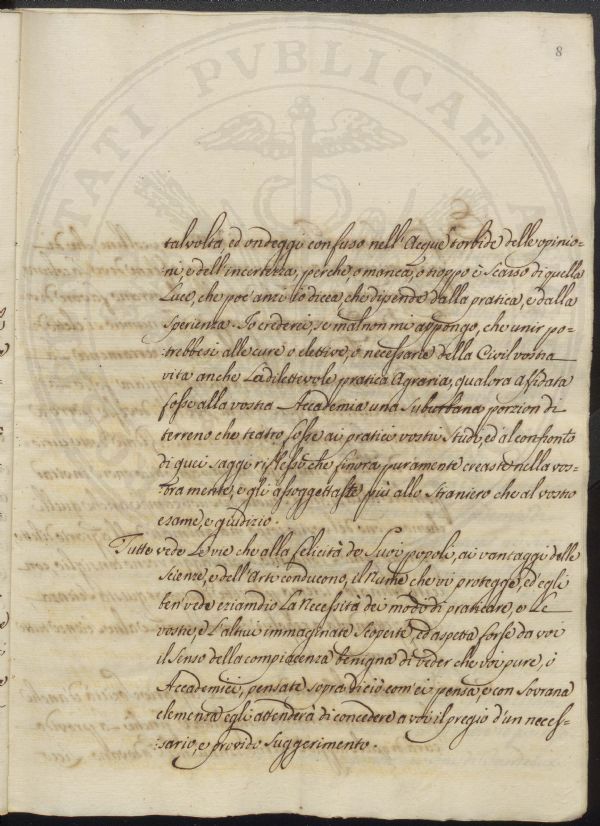 8
talvolta, ed ondeggi confuso nell'Acque torbide delle opinio-
ni, e dell'incertezza, perche, o manca, o troppo è scarso di quella
Luce, che poc'anzi io dicea, che dipende dalla pratica, e dalla
sperienza. Io crederei, se mal non mi appongo, che unir po-
:trebbesi alle cure o elettive, o necessarie della Civil vostra
vita anche La dilettevole pratica Agraria, qualora affidata
fosse alla vostra Accademia una suburbana porzion di
terreno che teatro fosse ai pratici vostri Studi, ed al confronto
di quei saggi riflessi che finora puramente creaste nella vos-
tra mente, e gli assoggettaste più allo straniero che al vostro
esame, e giudizio.
Tutte vede Le vie che alla felicità de Suoi popoli, ai vantaggi delle
Scienze, e dell'Arte conducono, il Nume che vi protegge, ed egli
ben vede eziandio La Necessità dei modi di praticare, e Le
vostre, e L'altrui immaginate scoperte, ed aspetta forse da voi
il senso della compiacenza benigna di veder che voi pure, o
Accademici, pensate sopra di ciò com'ei pensa, e con Sovrana
clemenza egli attenderà di concedere a voi il pregio d'un neces-
:sario, e provido suggerimento.
PVBLICAE